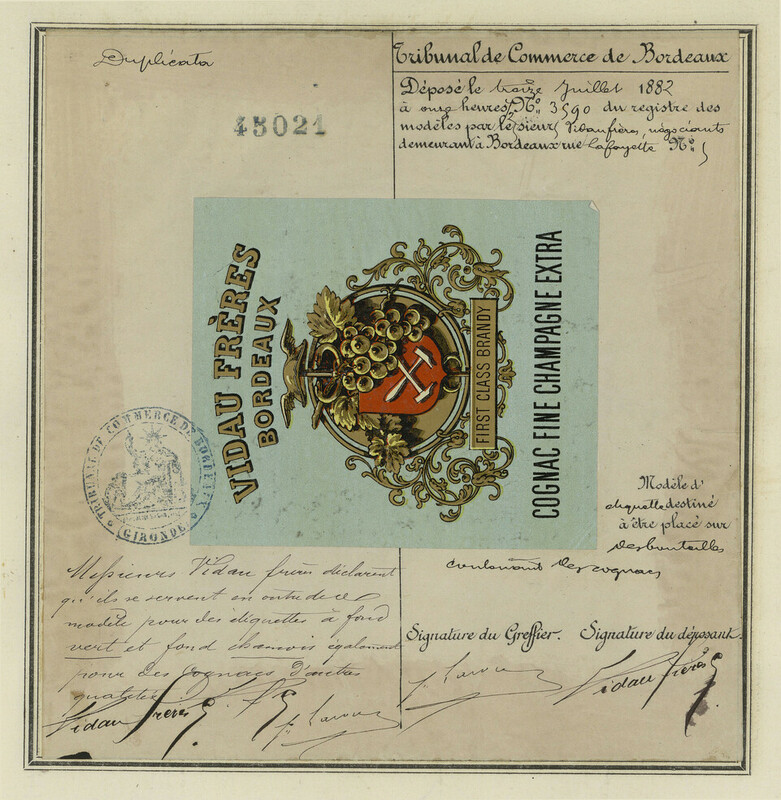 Duplicata
45021
Tribunal de Commerce de Bordeaux
Déposé le treize Juillet 1882
à onze heures, No. 3590 du registre des
modèles par les sieurs Vidau frères, négociants
demeurant à Bordeaux rue Lafayette No. 5
VIDAU FRÈRES
BORDEAUX
FIRST CLASS BRANDY
COGNAC FINE CHAMPAGNE EXTRA
TRIBUNAL DE COMMERCE DE BORDEAUX
GIRONDE
Modèle d'
étiquette destiné
à être placé sur
des bouteilles
contenant des cognacs
Messieurs Vidau frères déclarent
qu'ils se servent en outre de ce
modèle pour des étiquettes à fond
vert et fond chamois également
pour des cognacs d'autres
qualités
Signature du Greffier. Signature du déposant.
Vidau frères
Vidau frères